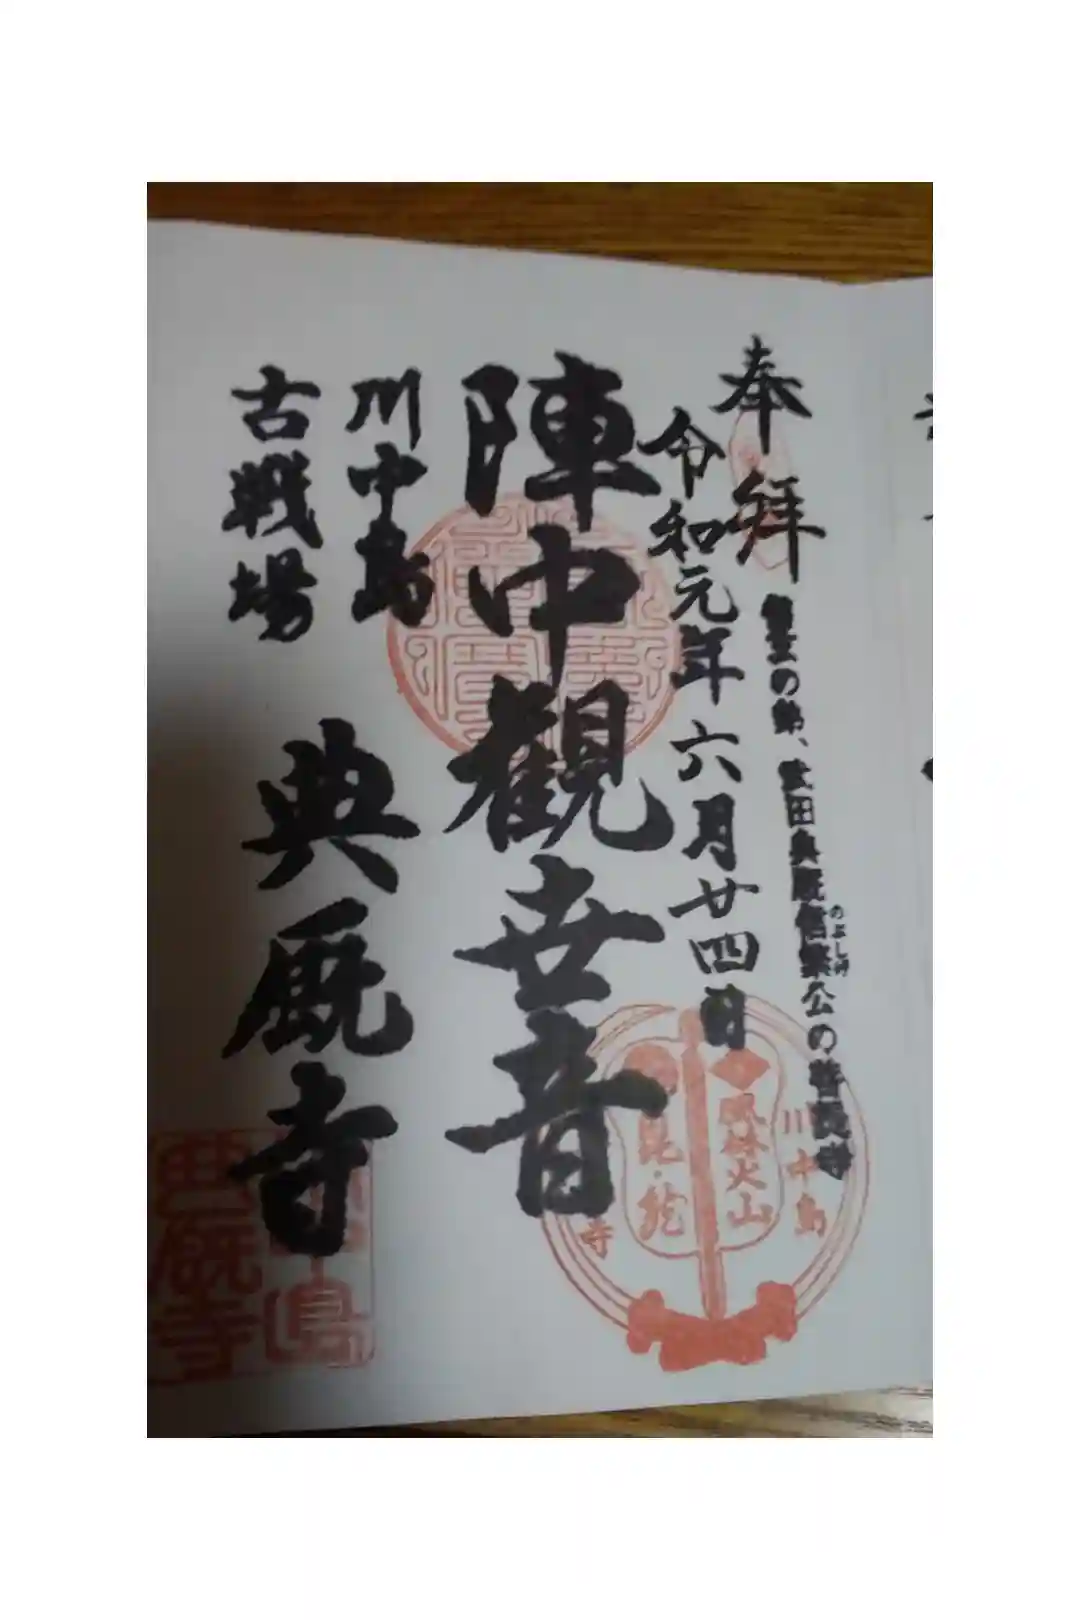 奉拝
信玄の弟、武田典厩信繁公の菩提寺
のぶしげ
令和元年六月廿四日
陣中観世音
川中島
古戦場
典厩寺
川中島
風林火山
寺
典厩寺